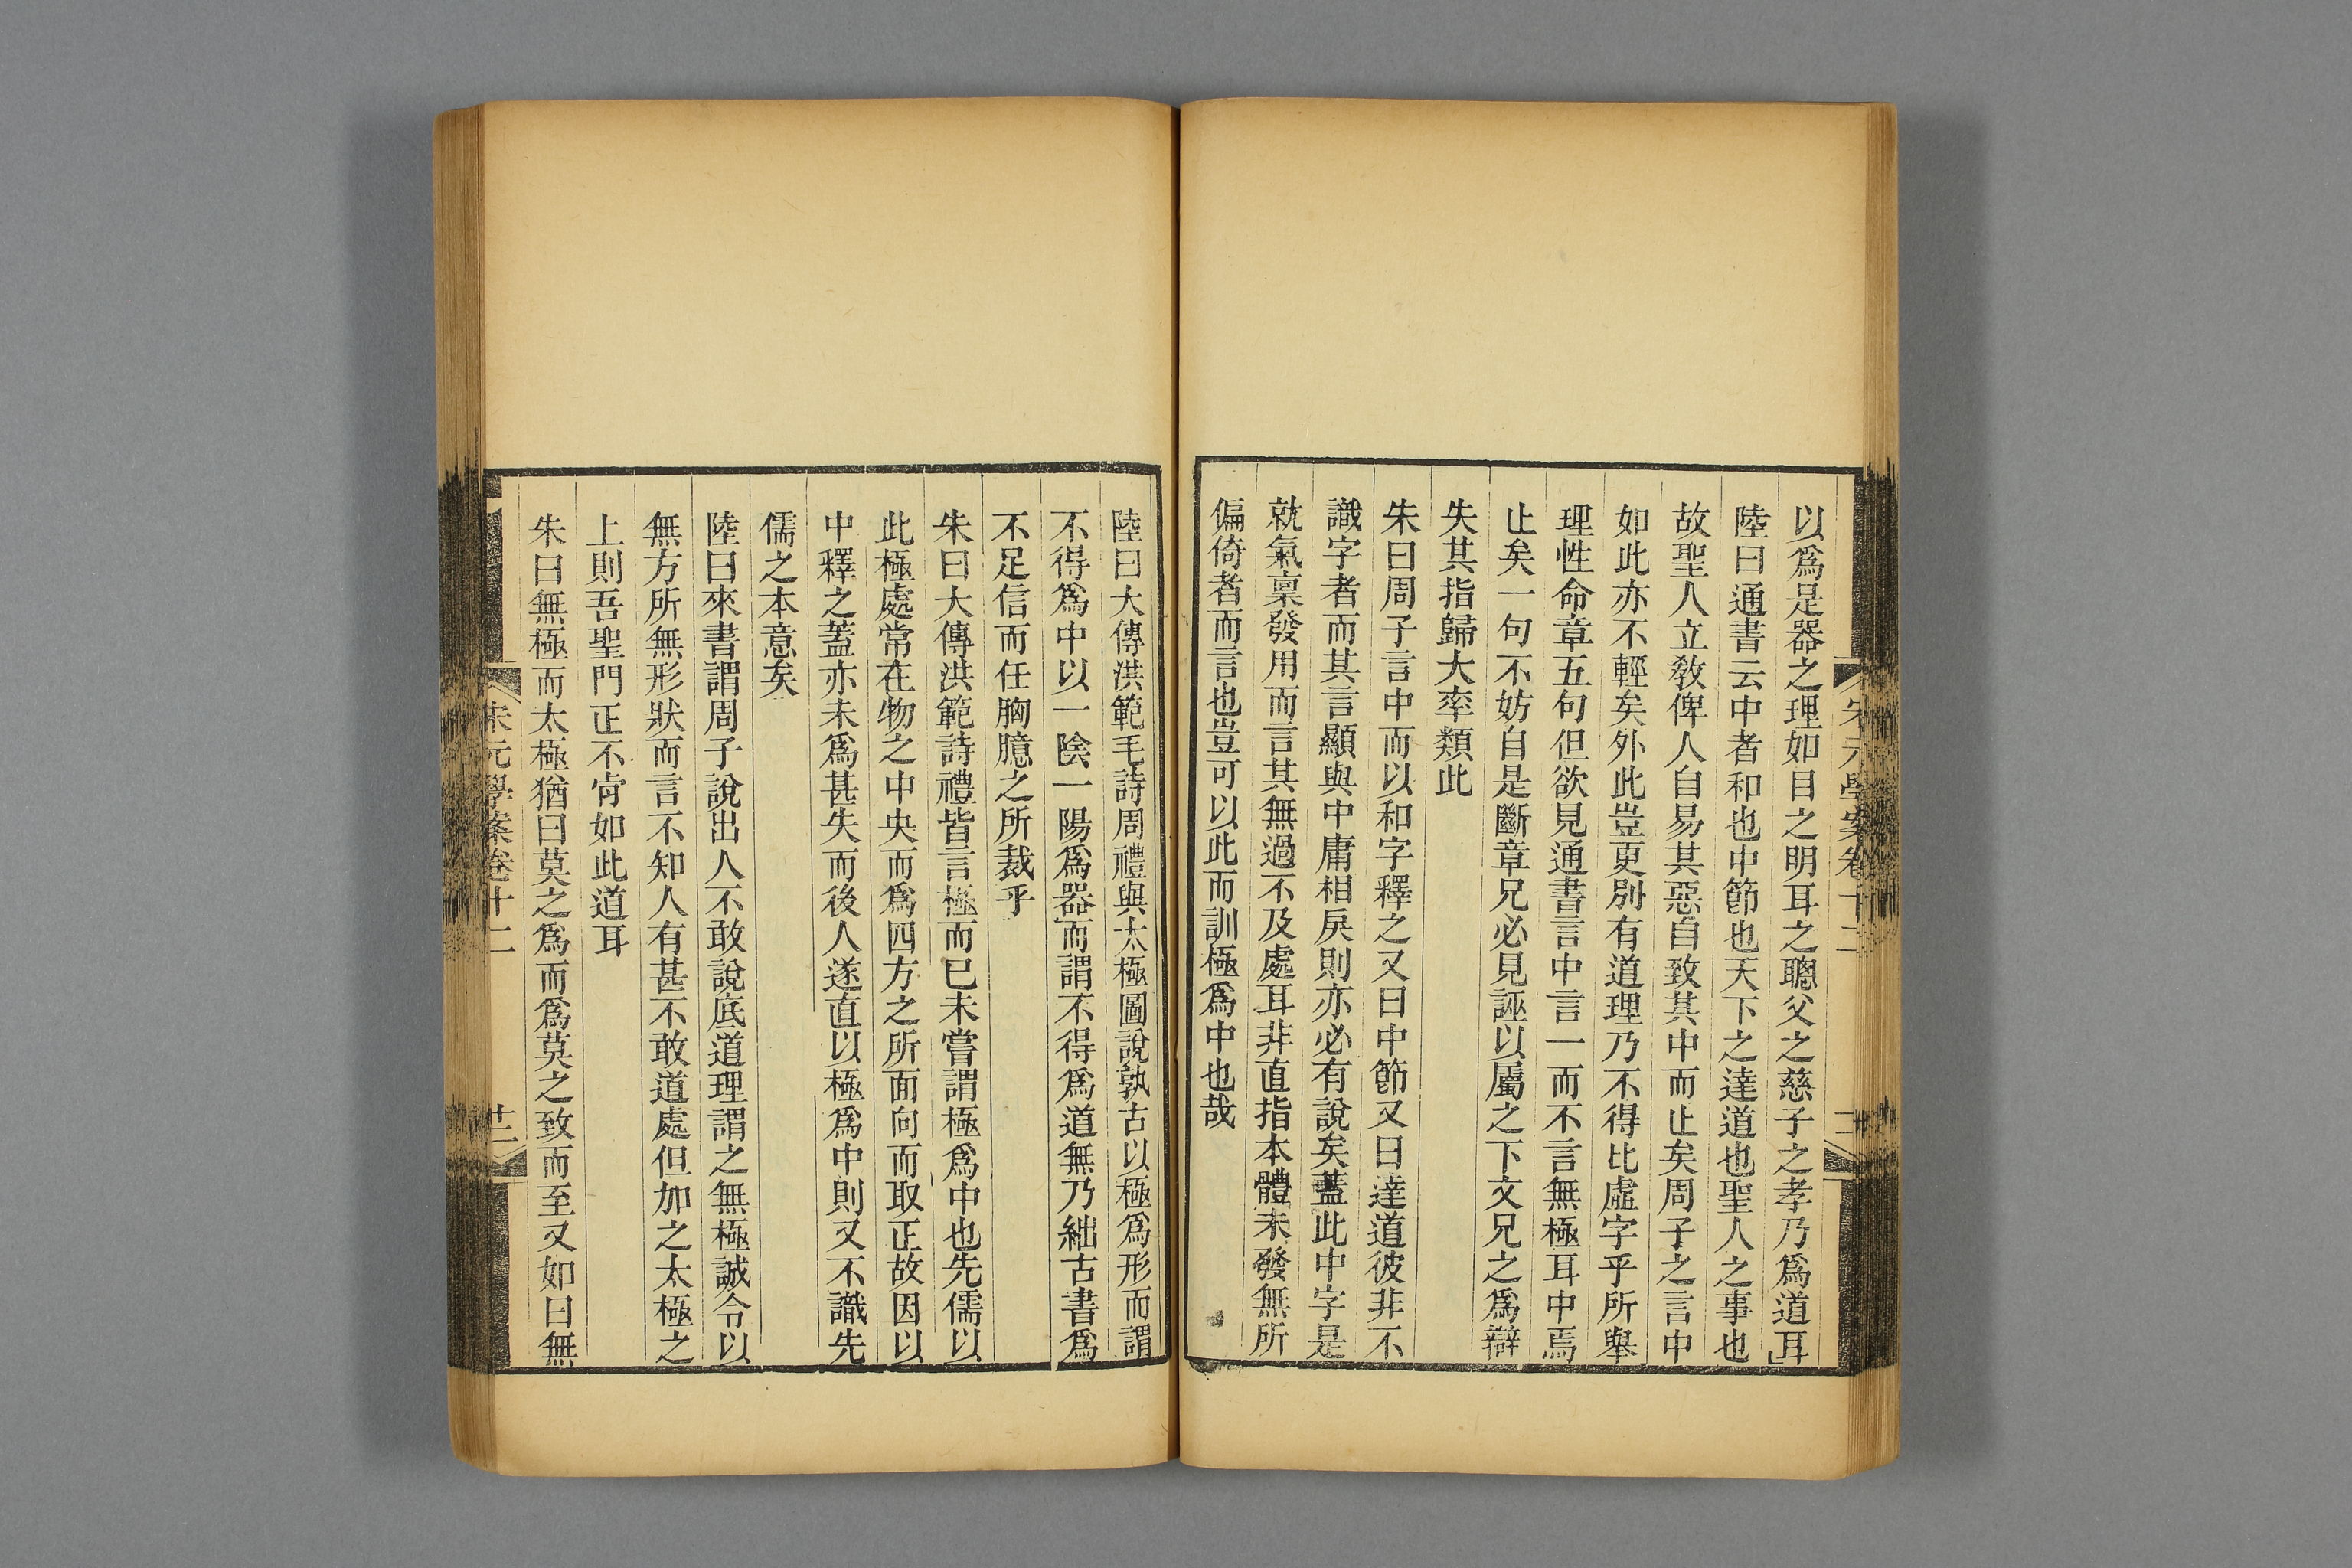 宋元學案卷十二
以爲是器之理如目之明耳之聰父之慈子之孝乃爲道耳
陸曰通書云中者和也中節也天下之達道也聖人之事也
故聖人立敎俾人自易其惡自致其中而止矣周子之言中
如此亦不輕矣外此豈更別有道理乃不得比虛字乎所舉
理性命章五句但欲見通書言中言一而不言無極耳中焉
止矣一句不妨自是斷章兄必見誣以屬之下文兄之爲辯
失其指歸大率類此
朱曰周子言中而以和字釋之又曰中節又曰達道彼非不
識字者而其言顯與中庸相戾則亦必有說矣蓋此中字是
就氣稟發用而言其無過不及處耳非直指本體未發無所
偏倚者而言也豈可以此而訓極爲中也哉
陸曰大傳洪範毛詩周禮與太極圖說孰古以極爲形而謂
不得爲中以一陰一陽爲器而謂不得爲道無乃絀古書爲
不足信而任胸臆之所裁乎
朱曰大傳洪範詩禮皆言極而已未嘗謂極爲中也先儒以
此極處常在物之中央而爲四方之所面向而取正故因以
中釋之蓋亦未爲甚失而後人遂直以極爲中則又不識先
儒之本意矣
陸曰來書謂周子說出人不敢說底道理謂之無極誠令以
無方所無形狀而言不知人有甚不敢道處但加之太極之
上則吾聖門正不肯如此道耳
朱曰無極而太極猶曰莫之爲而爲莫之致而至又如曰無
宋元學案卷十二